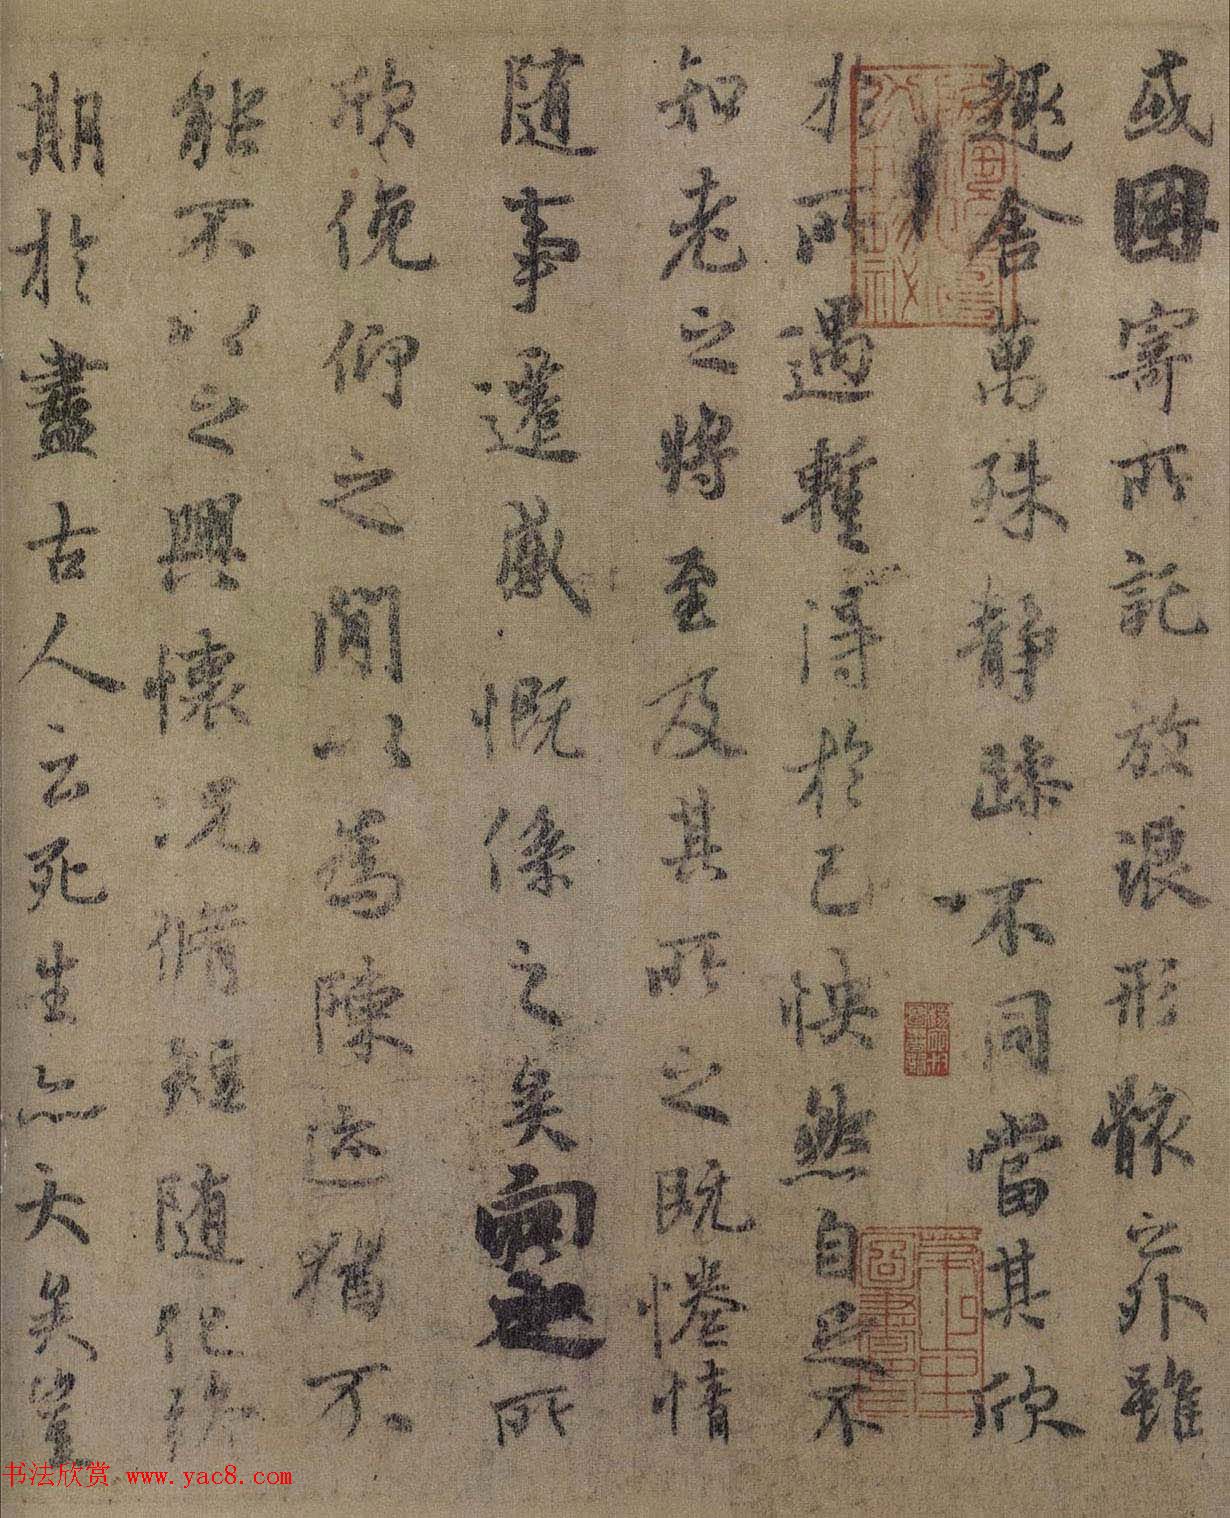 或因寄所託放浪形骸之外雖
趣舍萬殊静躁不同當其欣
於所遇暫得於己怏然自足不
知老之將至及其所之既惓情
随事遷感慨係之矣向之所
欣俛仰之間以為陳迹猶不
能不以之興懷况脩短随化終
期於盡古人云死生亦大矣豈
书法欣赏 www.yac8.com